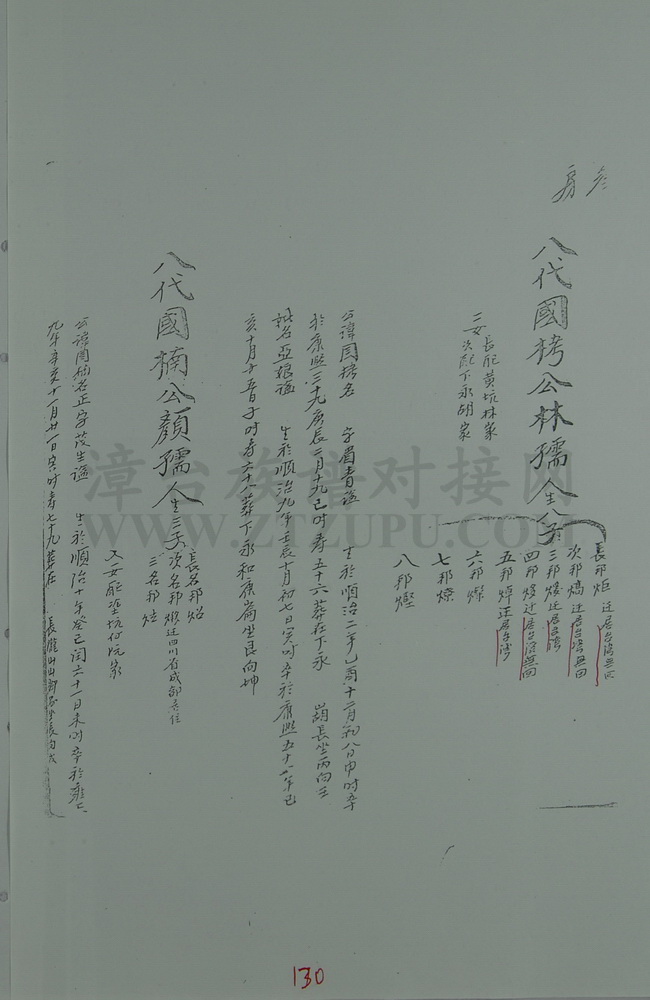 房
八代國栲公林孺人生八子
長邦炬 迁居台湾無回
次邦熇 迁居台湾無回
三邦煖 迁居台湾
四邦 迁居台湾無回
五邦焯 迁居台湾
六邦燦
七邦燎
八邦熞
長配黃坑林家
二女
次配下永胡家
公諱國栲名 字 谥 生於順治二年乙酉十二月初八日申时卒
於康熙三九庚辰二月十九巳时寿五十六葬在下永 湖長坐丙向壬
妣名亞娘谥 生於順治九年壬辰十月初七日寅时卒於康熙五十八年己
亥十月十五日子时寿六十八葬下永和康崙坐艮向坤
八代國楠公顏孺人生三子
長名邦炤
次名邦 迁四川省成都居住
三名邦炷
又女配 坑仔阮家
公諱國楠名正字茂生谥 生於順治十年癸巳閏六十一日未时卒於雍正
九年辛亥十一月廿一日寅时寿七十九葬在
漳台族谱对接网
WWW.ZTZUPU.COM
130